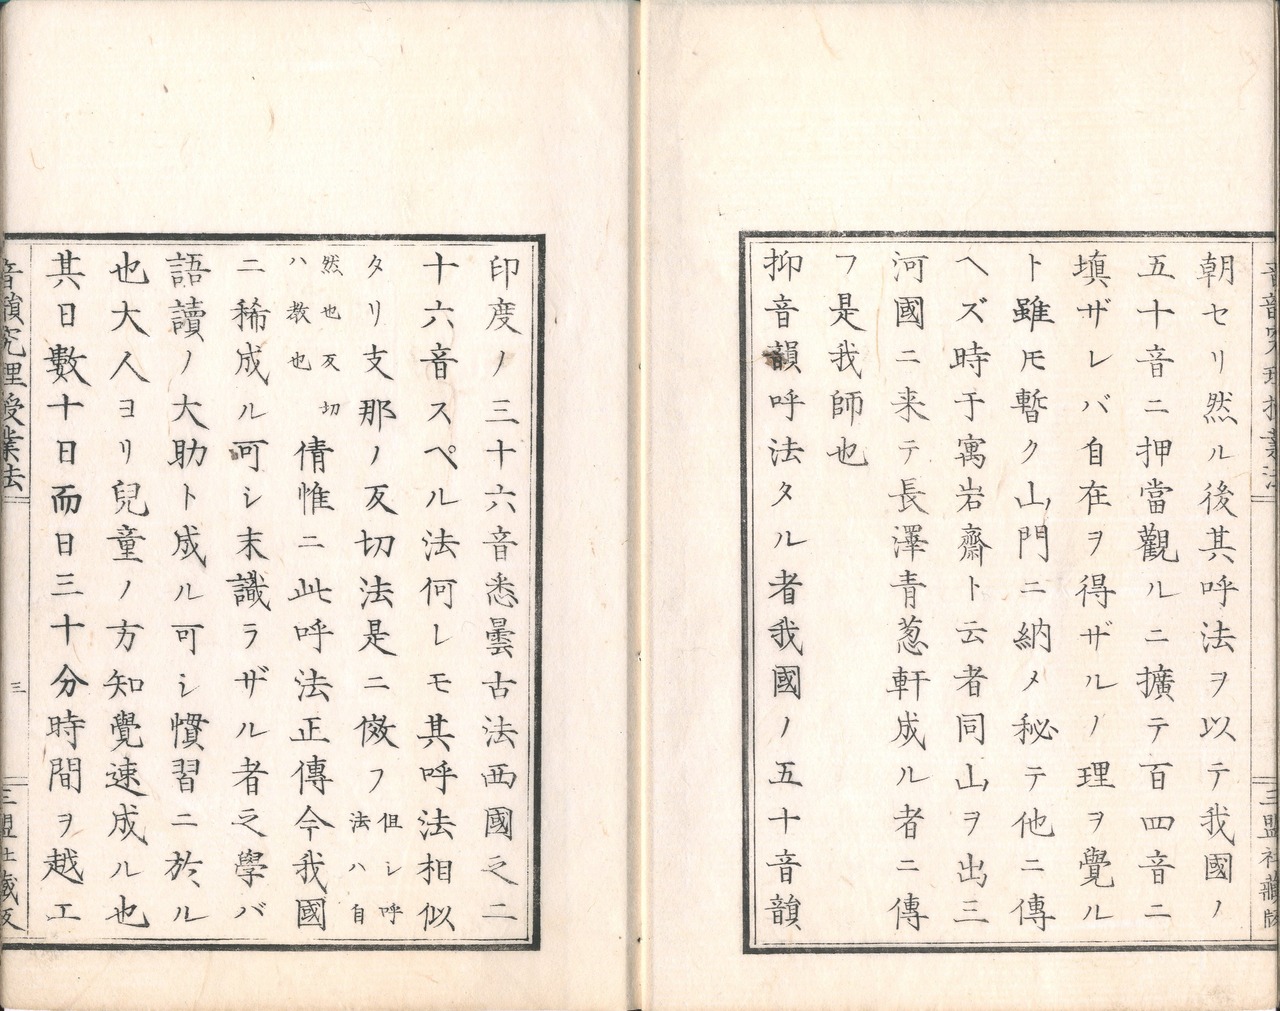 音韻究理授業法
三盟社藏版
朝セリ然ル後其呼法ヲ以テ我國ノ
五十音ニ押當觀ルニ擴テ百四音ニ
塡ザレバ自在ヲ得ザルノ理ヲ覺ル
ト雖𪜈暫ク山門ニ納メ秘テ他ニ傳
ヘズ時于寓岩齋ト云者同山ヲ出三
河國ニ来テ長澤青葱軒成ル者ニ傳
フ是我師也
抑音韻呼法タル者我國ノ五十音韻
印度ノ三十六音悉曇古法西國之二
十六音スペル法何レモ其呼法相似
タリ支那ノ反切法是ニ傚フ但シ呼法ハ自
然也反切ハ教也倩惟ニ此呼法正傳今我國
ニ稀成ル可シ末識ラザル者之學バ
語讀ノ大助ト成ル可シ慣習ニ於ル
也大人ヨリ兒童ノ方知覺速成ル也
其日數十日而日三十分時間ヲ越エ
音韻究理授業法
三
三盟社藏版